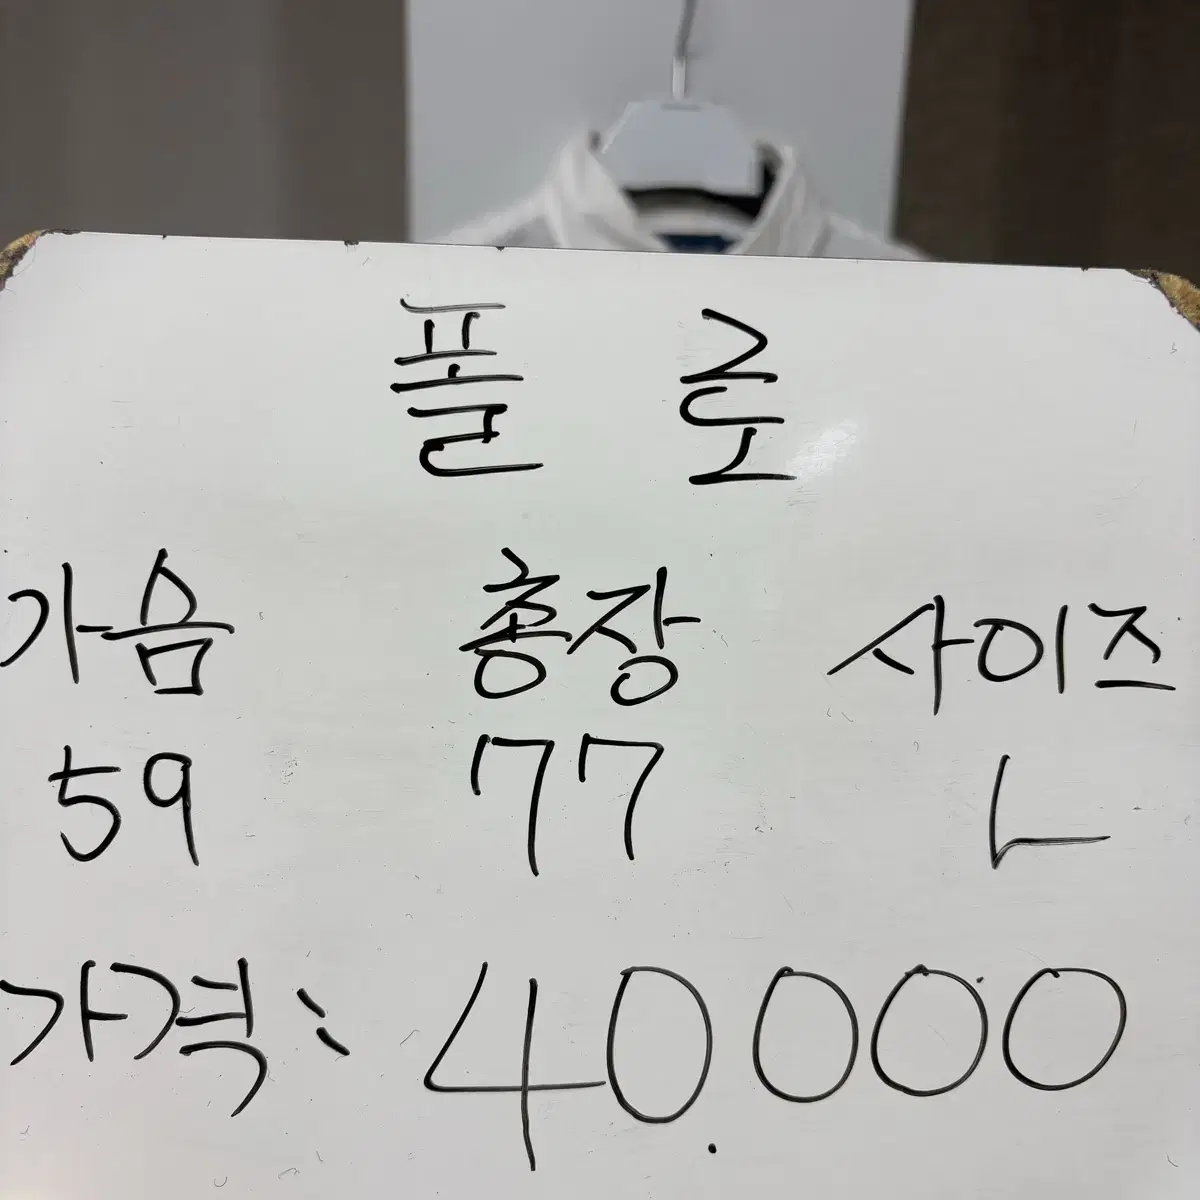 폴로
가슴 총장 사이즈
59 77 L
가격: 40.000